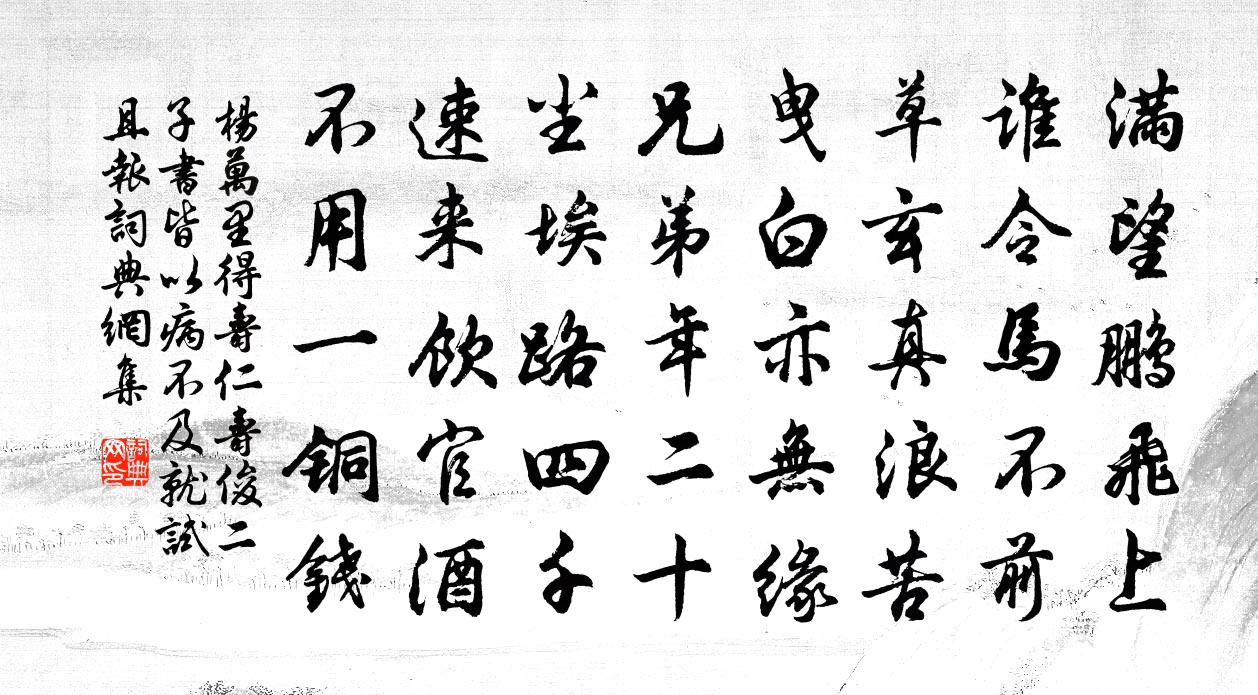 滿望鵬飛上
誰令馬不前
草玄真浪苦
曳白亦無緣
兄弟年二十
塵埃路四千
速来飲官酒
不用一銅錢
楊萬里得壽仁壽俊二
子書皆以病不及就試
且報詞典網集
詞典
网印